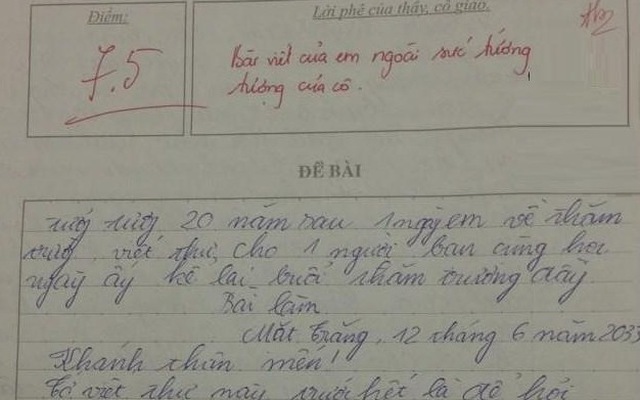 Điểm:
Lời phê của thầy, cô giáo.
7.5
Bài viết của em ngoài sức tưởng
tượng của cô.
ĐỀ BÀI
20 năm sau 1 ngày em về thăm
viết thư cho 1 người bạn cùng học
ngày ấy kể lại buổi thăm trường đầy
Bài làm
Mặt Trăng, 12 tháng 6 năm 2033
Khánh thân mến!
Tớ viết thư này trước hết là để hỏi